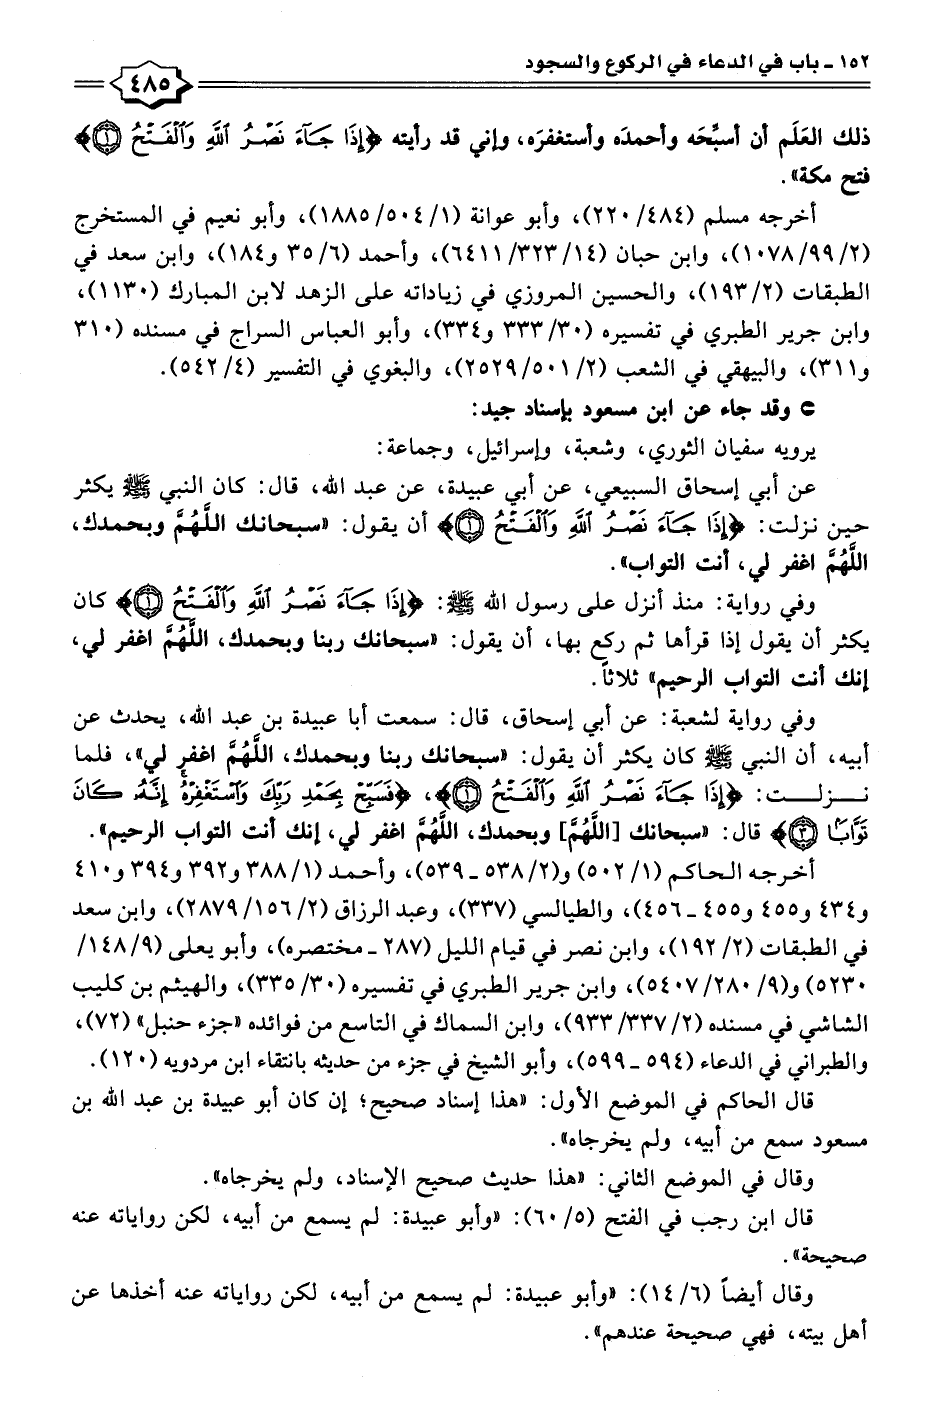 ١٥٢ - باب في الدعاء في الركوع والسجود
٤٨٥
ذلك العَلَم أن أسبِّحَه وأحمدَه وأستغفرَه، وإني قد رأيته ﴿إِذَا جَآءَ نَصْرُ ٱللَّهِ وَٱلْفَتْحُ ۝١﴾
فتح مكة».
أخرجه مسلم (٤٨٤/ ٢٢٠)، وأبو عوانة (١/ ٥٠٤/ ١٨٨٥)، وأبو نعيم في المستخرج
(٢/ ٩٩/ ١٠٧٨)، وابن حبان (١٤/ ٣٢٣/ ٦٤١١)، وأحمد (٦/ ٣٥ و١٨٤)، وابن سعد في
الطبقات (٢/ ١٩٣)، والحسين المروزي في زياداته على الزهد لابن المبارك (١١٣٠)،
وابن جرير الطبري في تفسيره (٣٠/ ٣٣٣ و٣٣٤)، وأبو العباس السراج في مسنده (٣١٠
و٣١١)، والبيهقي في الشعب (٢/ ٥٠١/ ٢٥٢٩)، والبغوي في التفسير (٤/ ٥٤٢).
وقد جاء عن ابن مسعود بإسناد جيد:
يرويه سفيان الثوري، وشعبة، وإسرائيل، وجماعة:
عن أبي إسحاق السبيعي، عن أبي عبيدة، عن عبد الله، قال: كان النبي ﷺ يكثر
حين نزلت: ﴿إِذَا جَآءَ نَصْرُ ٱللَّهِ وَٱلْفَتْحُ ۝١﴾ أن يقول: «سبحانك اللَّهُمَّ وبحمدك،
اللَّهُمَّ اغفر لي، أنت التواب».
وفي رواية: منذ أنزل على رسول الله ﷺ: ﴿إِذَا جَآءَ نَصْرُ ٱللَّهِ وَٱلْفَتْحُ ۝١﴾ كان
يكثر أن يقول إذا قرأها ثم ركع بها، أن يقول: «سبحانك ربنا وبحمدك، اللَّهُمَّ اغفر لي،
إنك أنت التواب الرحيم» ثلاثاً.
وفي رواية لشعبة: عن أبي إسحاق، قال: سمعت أبا عبيدة بن عبد الله، يحدث عن
أبيه، أن النبي ﷺ كان يكثر أن يقول: «سبحانك ربنا وبحمدك، اللَّهُمَّ اغفر لي»، فلما
نزلت: ﴿إِذَا جَآءَ نَصْرُ ٱللَّهِ وَٱلْفَتْحُ ۝١﴾، ﴿فَسَبِّحْ بِحَمْدِ رَبِّكَ وَٱسْتَغْفِرْهُ إِنَّهُۥ كَانَ
تَوَّابًا ۝٣﴾ قال: «سبحانك [اللَّهُمَّ] وبحمدك، اللَّهُمَّ اغفر لي، إنك أنت التواب الرحيم».
أخرجه الحاكم (١/ ٥٠٢) و(٢/ ٥٣٨ - ٥٣٩)، وأحمد (١/ ٣٨٨ و٣٩٢ و٣٩٤ و٤١٠
و٤٣٤ و٤٥٥ و٤٥٥ - ٤٥٦)، والطيالسي (٣٣٧)، وعبد الرزاق (٢/ ١٥٦/ ٢٨٧٩)، وابن سعد
في الطبقات (٢/ ١٩٢)، وابن نصر في قيام الليل (٢٨٧ - مختصره)، وأبو يعلى (٩/ ١٤٨/
٥٢٣٠) و(٩/ ٢٨٠/ ٥٤٠٧)، وابن جرير الطبري في تفسيره (٣٠/ ٣٣٥)، والهيثم بن كليب
الشاشي في مسنده (٢/ ٣٣٧/ ٩٣٣)، وابن السماك في التاسع من فوائده «جزء حنبل» (٧٢)،
والطبراني في الدعاء (٥٩٤ - ٥٩٩)، وأبو الشيخ في جزء من حديثه بانتقاء ابن مردويه (١٢٠).
قال الحاكم في الموضع الأول: «هذا إسناد صحيح؛ إن كان أبو عبيدة بن عبد الله بن
مسعود سمع من أبيه، ولم يخرجاه».
وقال في الموضع الثاني: «هذا حديث صحيح الإسناد، ولم يخرجاه».
قال ابن رجب في الفتح (٥/ ٦٠): «وأبو عبيدة: لم يسمع من أبيه، لكن رواياته عنه
صحيحة».
وقال أيضاً (٦/ ١٤): «وأبو عبيدة: لم يسمع من أبيه، لكن رواياته عنه أخذها عن
أهل بيته، فهي صحيحة عندهم».